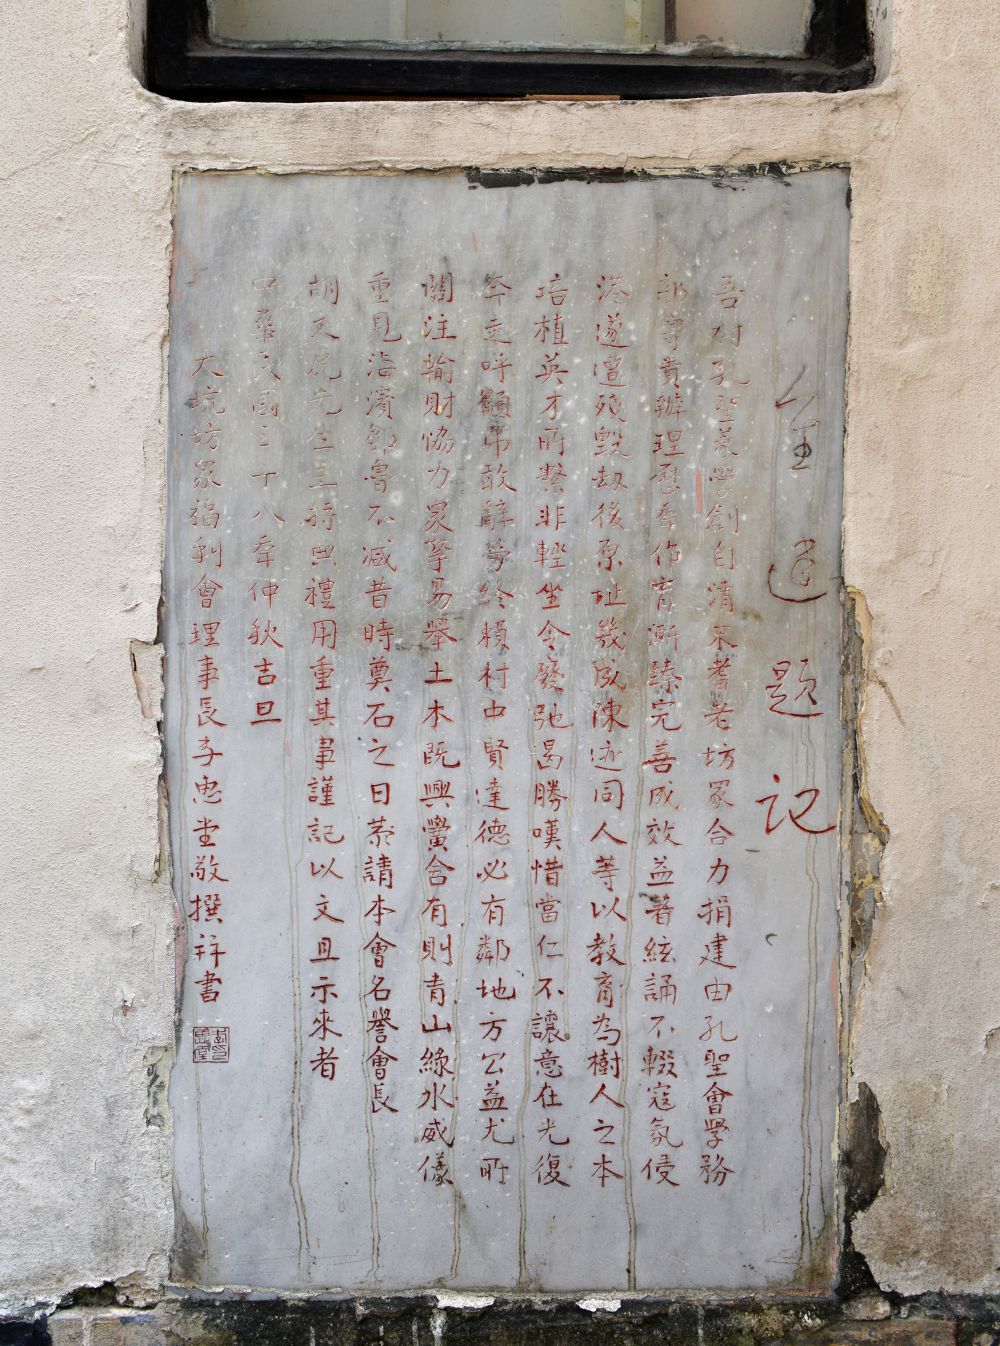 道題記
吾村孔聖義學創自清末耆老坊眾合力捐建由孔聖會學務
部尊責辦理歷年作育漸臻完善成效益著絃誦不輟寇氛侵
港遂遭殘毀劫後原址幾成陳迹同人等以教育為樹人之本
培植英才所繫非輕坐令廢弛曷勝嘆惜當仁不讓意在光復
奔走呼籲弗敢辭勞終賴村中賢達德必有鄰地方公益尤所
關注輸財協力眾擎易舉土木既興黌舍有則青山綠水威儀
重見沿濱鄒魯不減昔時奠石之日恭請本會名譽會長
胡文虎先生主持典禮用重其事謹記以文且示來者
中華民國三十八年仲秋吉旦
大坑坊眾福利會理事長李忠堂敬撰并書